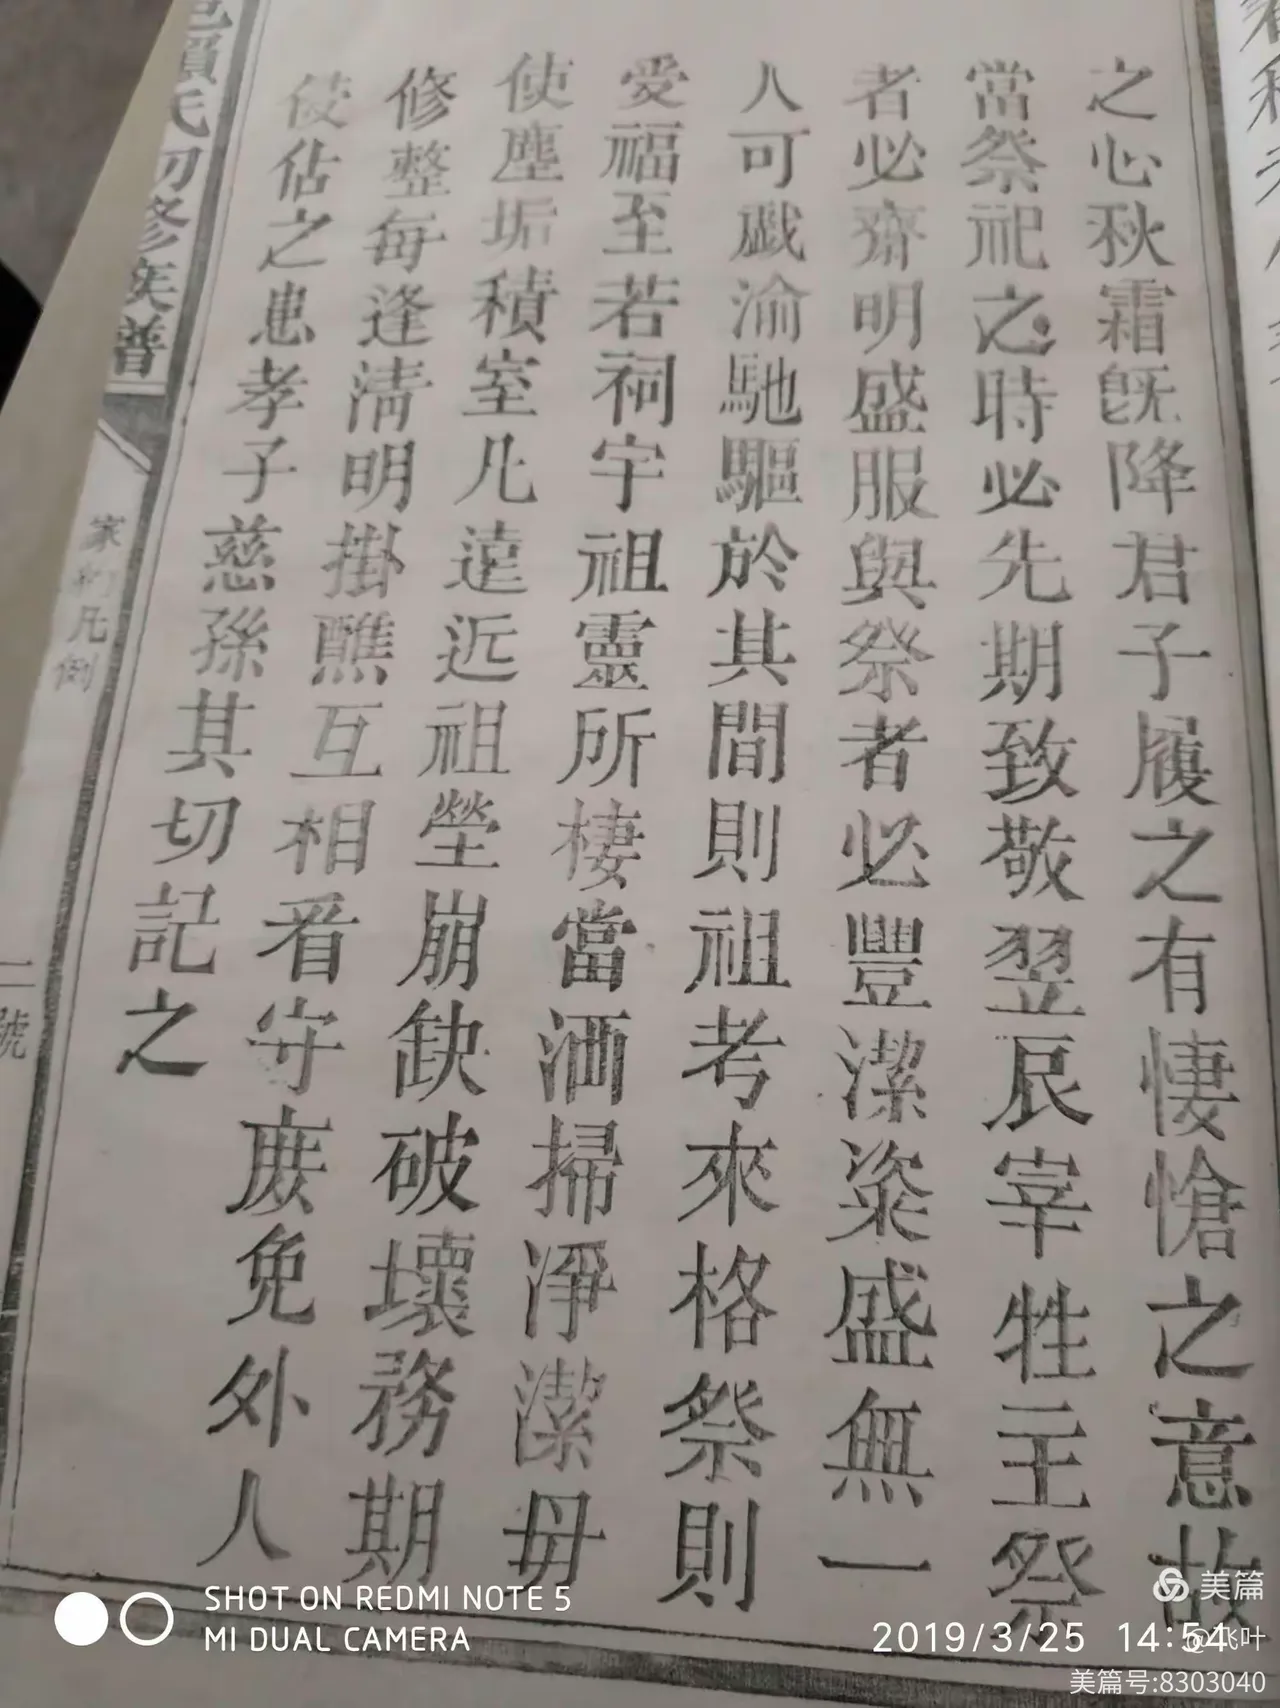 之心秋霜旣降君子履之有悽愴之意故
當祭祀之時必先期致敬翌辰宰牲主祭
者必齋明盛服與祭者必豐潔粢盛無一
人可戱渝馳驅於其間則祖考來格祭則
受福至若祠宇祖靈所棲當洒掃淨潔毋
使塵垢積室凡遠近祖塋崩缺破壞務期
修整每逢淸明掛醮互相看守庶免外人
侵佔之患孝子慈孫其切記之
邑賴氏初修族譜
家約凡例
二號
SHOT ON REDMI NOTE 5
MI DUAL CAMERA
2019/3/25 14:54
美篇
@飞叶
美篇号:8303040